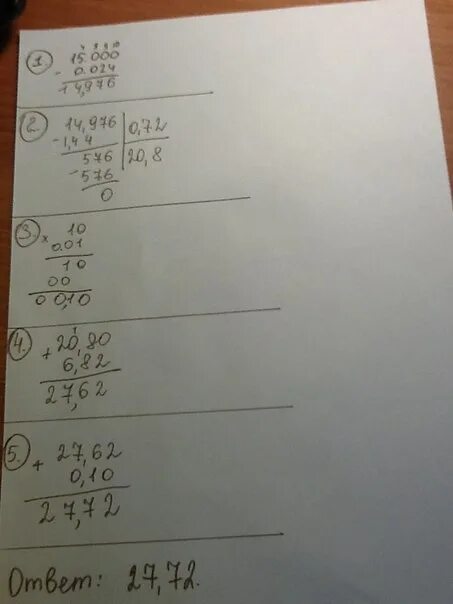 1.
4 9 9 10
15.000
- 0.024
14,976
2.
14,976 | 0,72
- 1,44 | 20,8
576
- 576
0
3.
10
× 0.01
10
00
00,10
4.
1
+ 20,80
6,82
27,62
5.
+ 27,62
0,10
27,72
Ответ: 27,72.